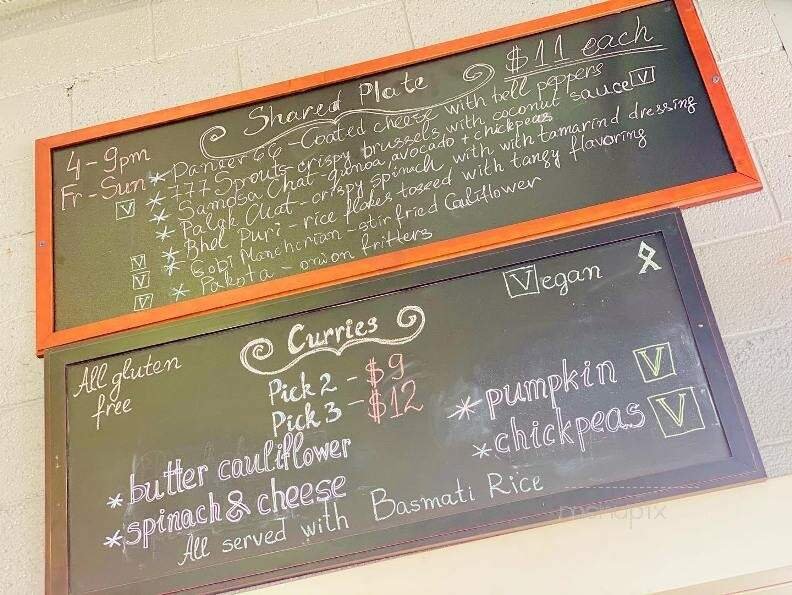 Shared Plate $11 each
4-9pm
Fr-Sun
* Paneer 66 - Coated cheese with bell peppers
* 777 Sprouts - crispy brussels with coconut sauce V
V * Samosa Chat - quinoa, avocado + chickpeas
* Palak Chat - crispy spinach with with tamarind dressing
* Bhel Puri - rice flakes tossed with tangy flavoring
V * Gobi Manchurian - stir fried Cauliflower
V * Pakora - onion fritters
V
Vegan
All gluten free
Curries
Pick 2 - $9
Pick 3 - $12
* butter cauliflower
* spinach & cheese
* pumpkin V
* chickpeas V
All served with Basmati Rice
menupix